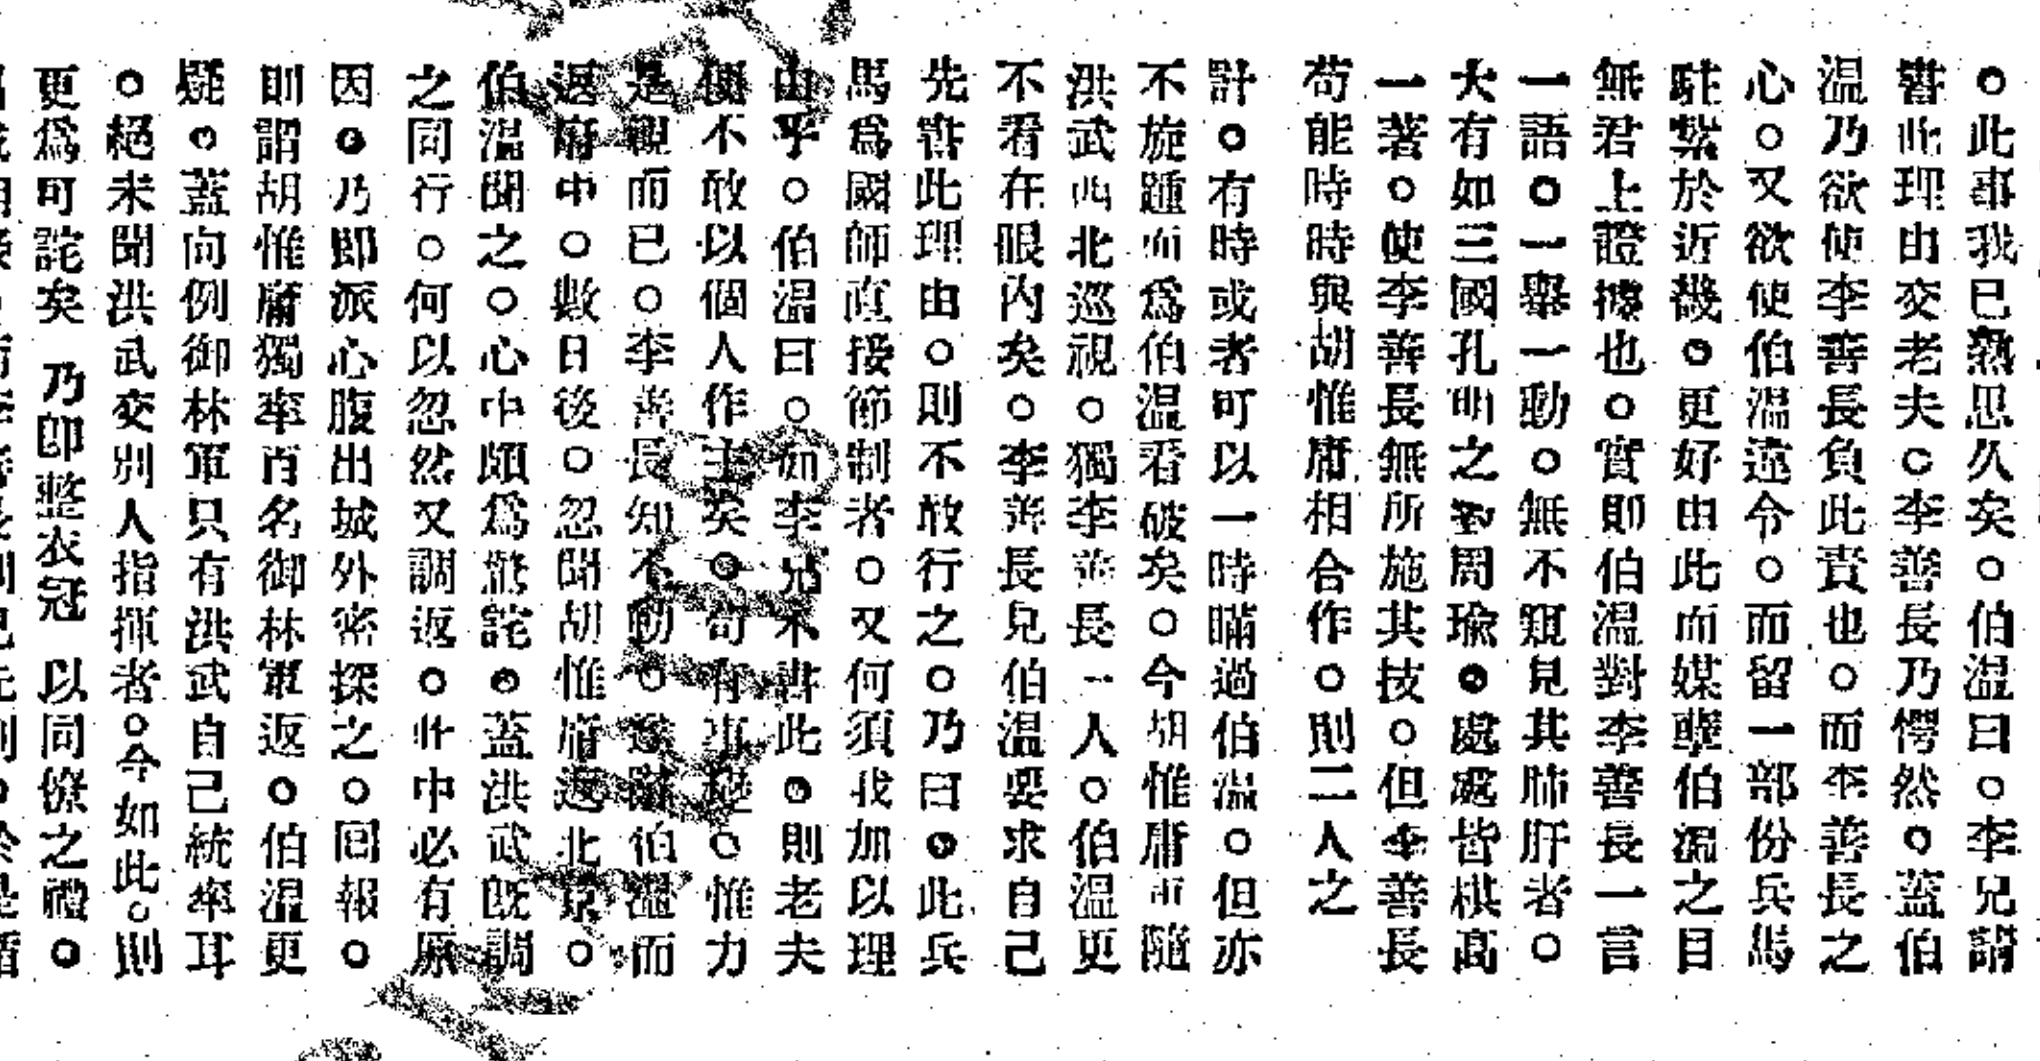 ○此事我已熟思久矣○伯温曰○李兄請
書此理由交老夫○李善長乃愕然○蓋伯
温乃欲使李善長負此責也○而李善長之
心○又欲使伯温遠令○而留一部份兵馬
駐紮於近畿○更好由此而媒孽伯温之目
無君上證據也○實則伯温對李善長一言
一語○一舉一動○無不窺見其肺肝者○
大有如三國孔明之對周瑜○處處皆棋高
一著○使李善長無所施其技○但李善長
苟能時時與胡惟庸相合作○則二人之
計○有時或者可以一時瞞過伯温○但亦
不旋踵而爲伯温看破矣○今胡惟庸而隨
洪武西北巡視○獨李善長一人○伯温更
不看在眼内矣○李善長見伯温要求自己
先書此理由○則不敢行之○乃曰○此兵
馬爲國師直接節制者○又何須我加以理
由乎○伯温曰○如李兄不書此○則老夫
便不敢以個人作主矣○苟有事變○惟力
是視而已○李善長知不動○遂辭伯温而
返府中○數日後○忽聞胡惟庸返北京○
伯温聞之○心中頗爲驚詫○蓋洪武既調
之同行○何以忽然又調返○此中必有原
因○乃即派心腹出城外密探之○回報○
則謂胡惟庸獨率百名御林軍返○伯温更
疑○蓋向例御林軍只有洪武自己統率耳
○絕未聞洪武交别人指揮者○今如此○則
更爲可詫矣 乃卽整衣冠 以同僚之禮○